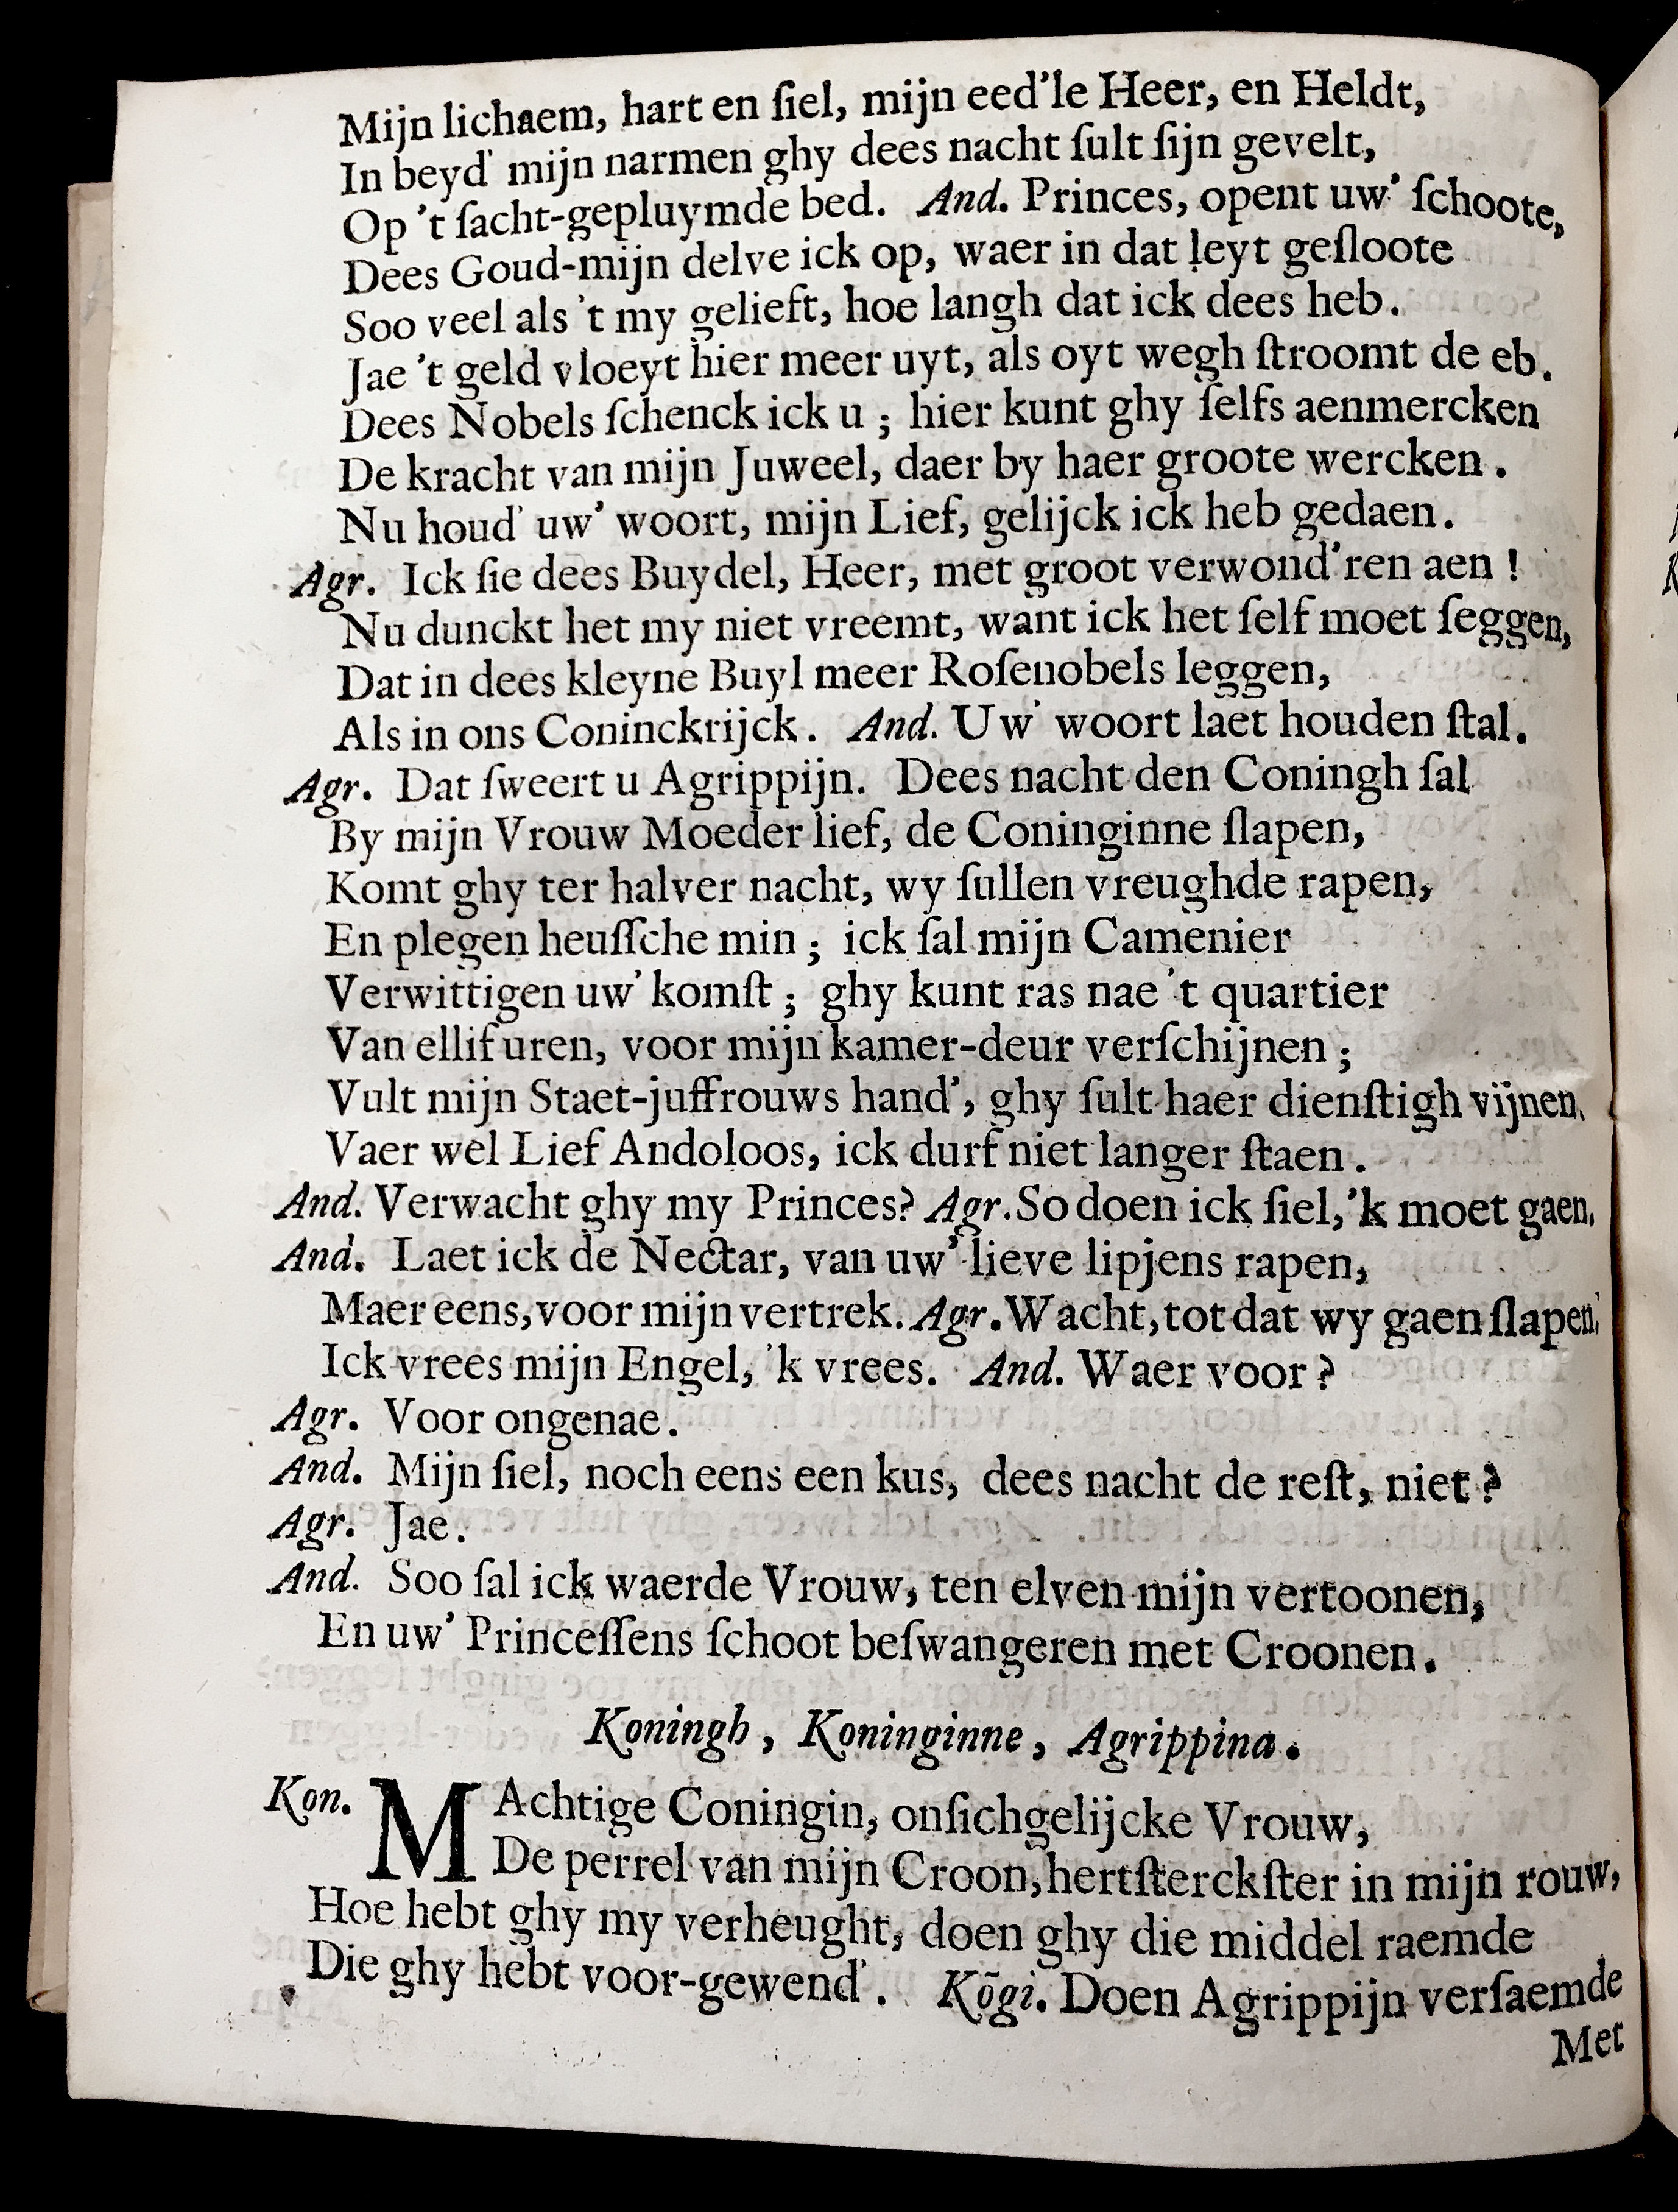 Mijn lichaem, hart en ſiel, mijn eed'le Heer, en Heldt,
In beyd' mijn narmen ghy dees nacht ſult ſijn gevelt,
Op 't ſacht-gepluymde bed. And. Princes, opent uw' ſchoote,
Dees Goud-mijn delve ick op, waer in dat leyt geſloote
Soo veel als 't my gelieft, hoe langh dat ick dees heb.
Jae 't geld vloeyt hier meer uyt, als oyt wegh ſtroomt de eb.
Dees Nobels ſchenck ick u; hier kunt ghy ſelfs aenmercken
De kracht van mijn Juweel, daer by haer groote wercken.
Nu houd' uw' woort, mijn Lief, gelijck ick heb gedaen.
Agr. Ick ſie dees Buydel, Heer, met groot verwond'ren aen!
Nu dunckt het my niet vreemt, want ick het ſelf moet ſeggen,
Dat in dees kleyne Buyl meer Roſenobels leggen,
Als in ons Coninckrijck. And. Uw' woort laet houden ſtal.
Agr. Dat ſweert u Agrippijn. Dees nacht den Coningh ſal
By mijn Vrouw Moeder lief, de Coninginne ſlapen,
Komt ghy ter halver nacht, wy ſullen vreughde rapen,
En plegen heuſſche min; ick ſal mijn Camenier
Verwittigen uw' komſt; ghy kunt ras nae 't quartier
Van ellif uren, voor mijn kamer-deur verſchijnen;
Vult mijn Staet-juffrouws hand', ghy ſult haer dienſtigh vijnen.
Vaer wel Lief Andoloos, ick durf niet langer ſtaen.
And. Verwacht ghy my Princes? Agr. So doen ick ſiel, 'k moet gaen.
And. Laet ick de Nectar, van uw' lieve lipjens rapen,
Maer eens, voor mijn vertrek. Agr. Wacht, tot dat wy gaen ſlapen.
Ick vrees mijn Engel, 'k vrees. And. Waer voor?
Agr. Voor ongenae.
And. Mijn ſiel, noch eens een kus, dees nacht de reſt, niet?
Agr. Jae.
And. Soo ſal ick waerde Vrouw, ten elven mijn vertoonen,
En uw' Princeſſens ſchoot beſwangeren met Croonen.
Koningh, Koninginne, Agrippina.
Kon. MAchtige Coningin, onſichgelijcke Vrouw,
De perrel van mijn Croon, hertſterckſter in mijn rouw,
Hoe hebt ghy my verheught, doen ghy die middel raemde
Die ghy hebt voor-gewend'. Kōgi. Doen Agrippijn verſaemde
Met